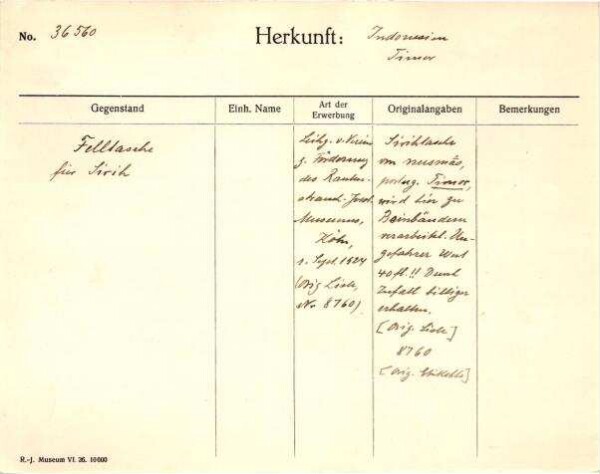 No. 36560
Herkunft: Indonesien
Timor
Gegenstand
Einh. Name
Art der
Erwerbung
Originalangaben
Bemerkungen
Felltasche
für Sirih
Leihg. v. Verein
z. Förderung
des Rauten-
strauch-Joest
Museums,
Köln,
1. Sept. 1924
(Orig. Liste,
No 8760)
Sirihtasche
portug. Timor,
wird hier zu
Beinbändern
verarbeitet. Un-
gefährer Wert
40 fl!! Durch
Zufall billiger
erhalten.
[Orig. Liste]
8760
[Orig. Etikette]
R.-J. Museum VI. 26. 10000